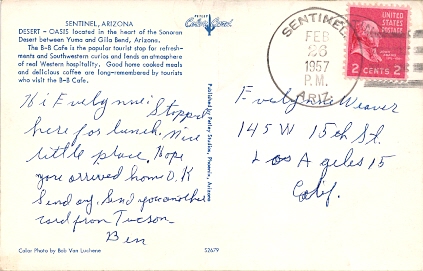 SENTINEL, ARIZONA
DESERT - OASIS located in the heart of the Sonoran
Desert between Yuma and Gila Bend, Arizona.
The B-B Cafe is the popular tourist stop for refresh-
ments and Southwestern curios and lends an atmosphere
of real Western hospitality. Good home cooked meals
and delicious coffee are long-remembered by tourists
who visit the B-B Cafe.
Hi Evelynne Stopped
here for lunch. Nice
little place. Hope
you arrived home O.K
Sunday. Send you another
card from Tucson
Ben
Color Photo by Bob Van Luchene
52679
PETLEY
Published by Petley Studios, Phoenix, Arizona
SENTINEL
FEB
26
1957
P.M.
ARIZ.
UNITED
STATES
POSTAGE
2 CENTS 2
Evelynne Weaver
145 W 15th St.
Los Angeles 15
Calif.